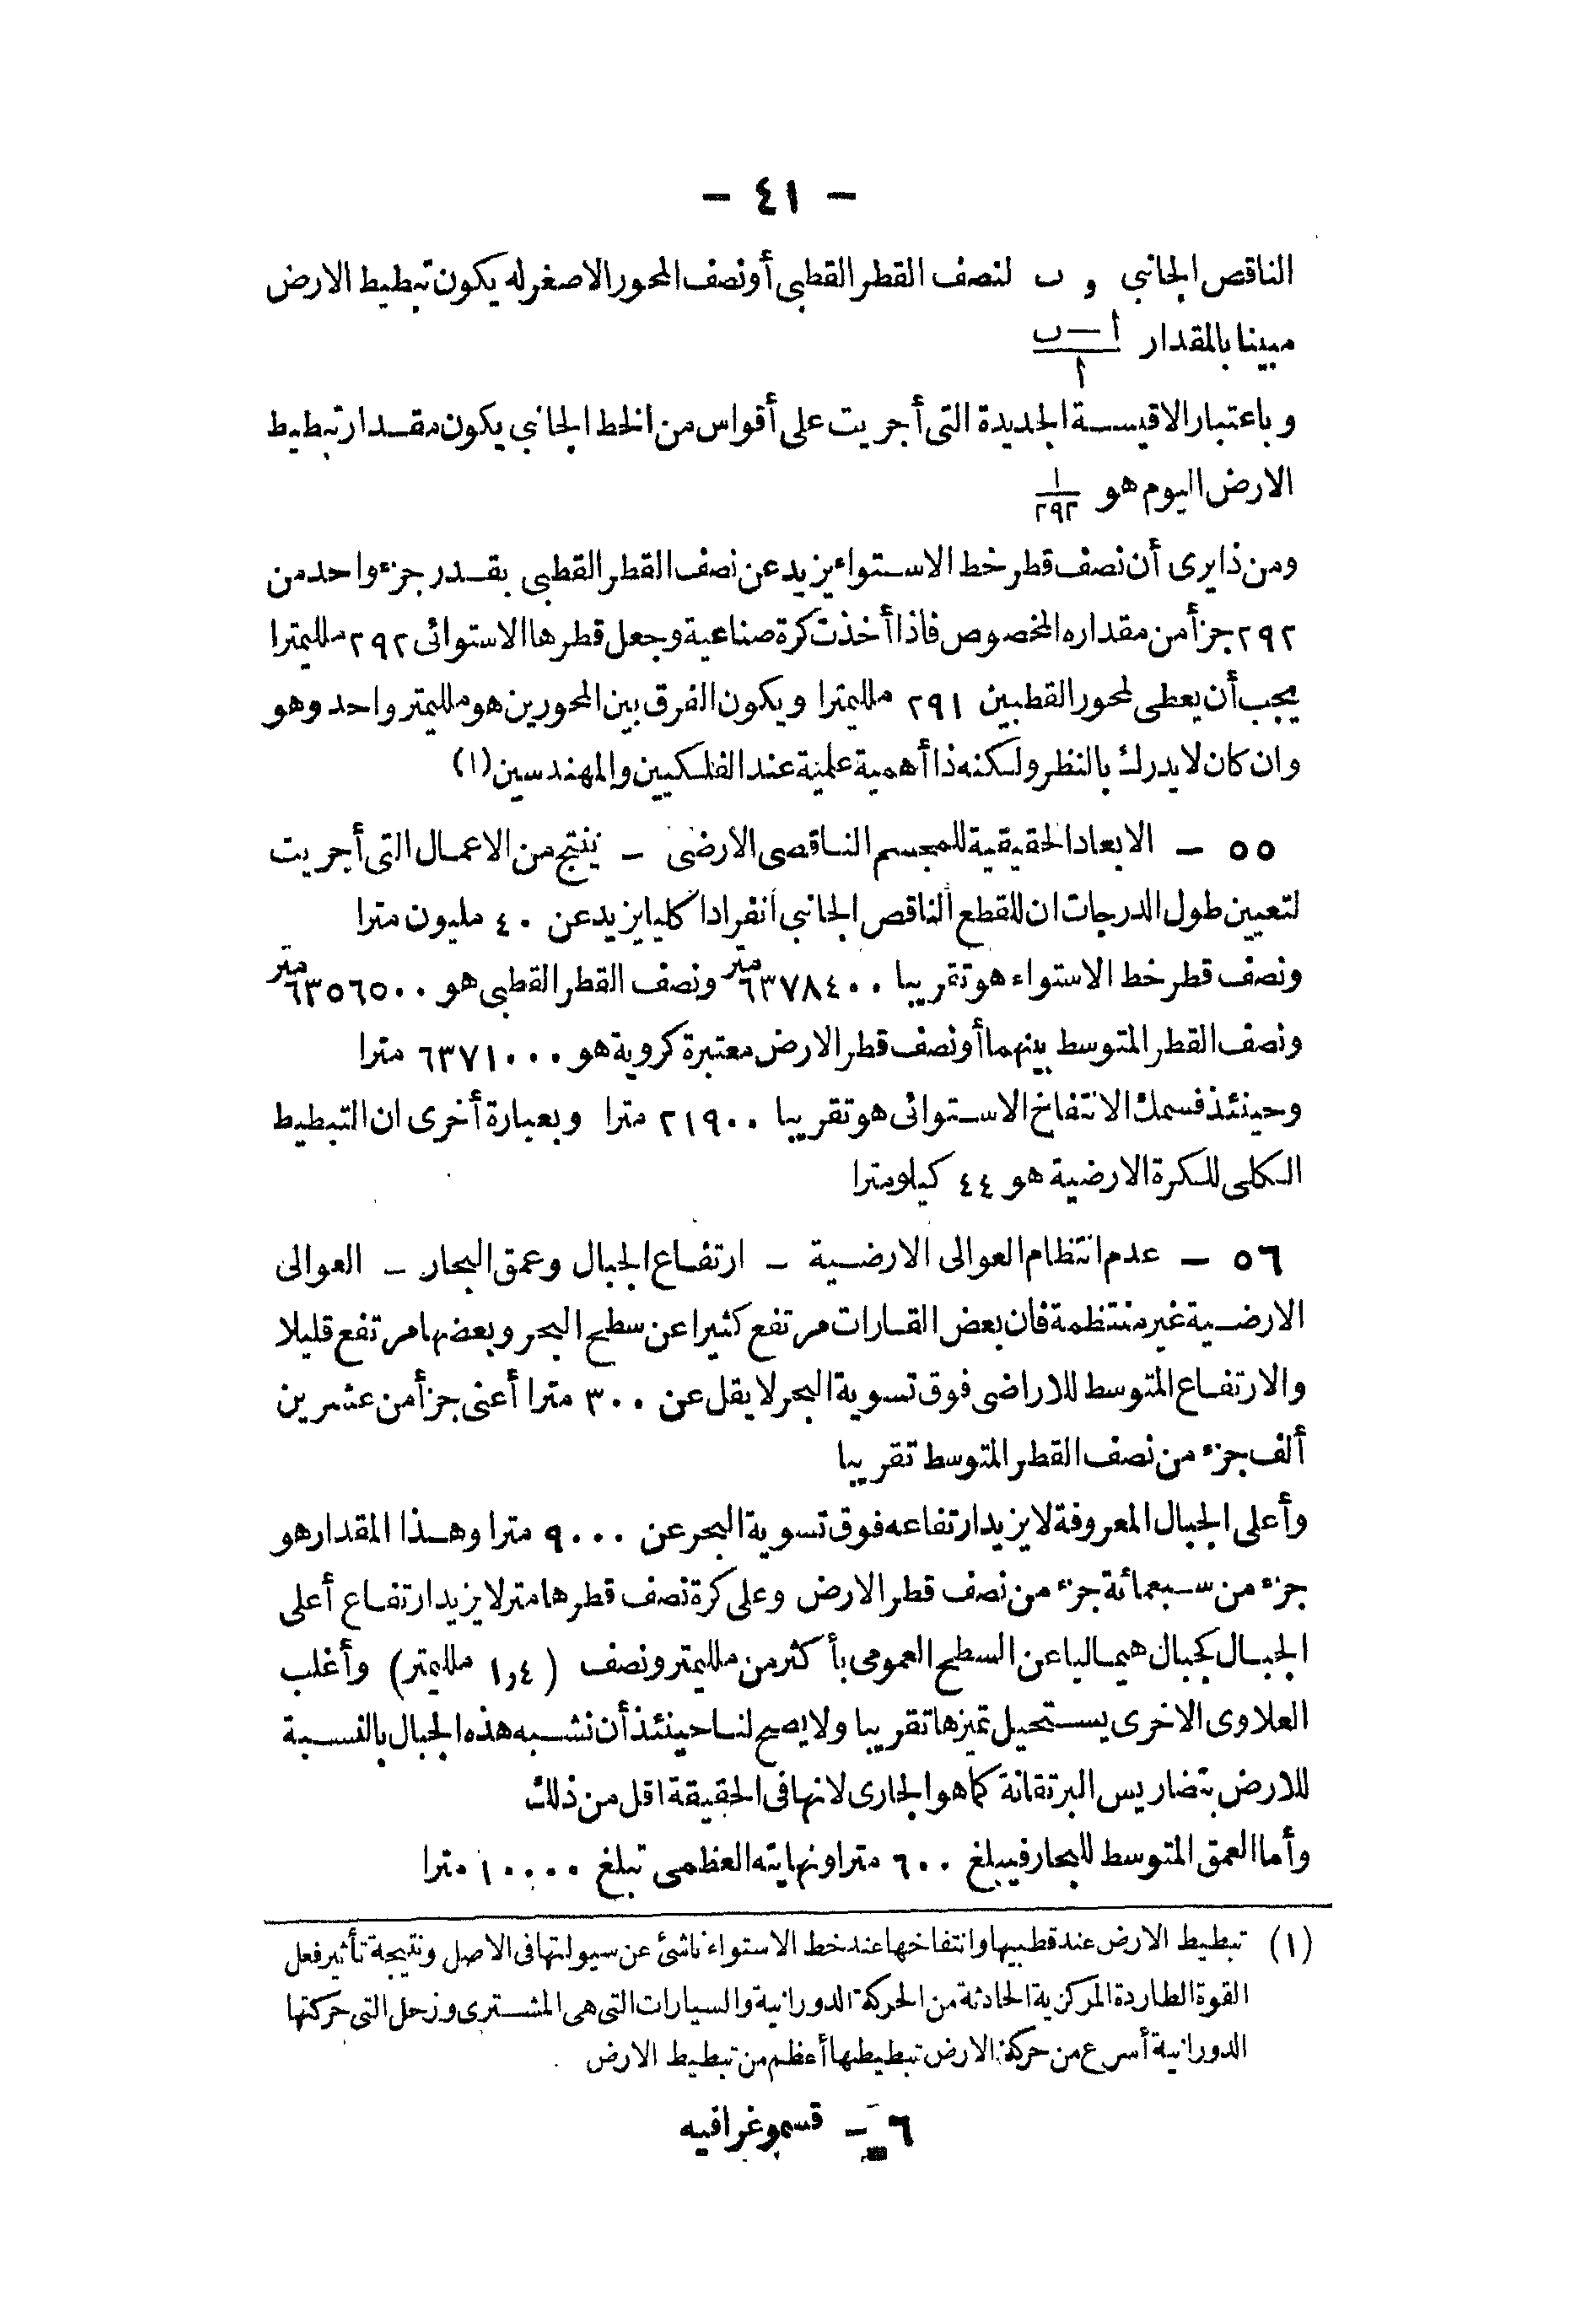 - ٤١ -
الناقص الجانبي و ب لنصف القطر القطبي أو نصف المحور الاصغر له يكون تبطيط الارض
مبينا بالمقدار ا — ب / ا
وباعتبار الاقيسة الجديدة التى أجريت على أقواس من الخط الجانبي يكون مقدار تبطيط
الارض اليوم هو ١/٢٩٢
ومن ذا يرى أن نصف قطر خط الاستواء يزيد عن نصف القطر القطبى بقدر جزء واحد من
٢٩٢ جزأ من مقداره المخصوص فاذا أخذت كرة صناعية وجعل قطرها الاستوائى ٢٩٢ ملليمترا
يجب أن يعطى لمحور القطبين ٢٩١ ملليمترا ويكون الفرق بين المحورين هو ملليمتر واحد وهو
وان كان لا يدرك بالنظر ولكنه ذا أهمية علمية عند الفلكيين والمهندسين (١)
٥٥ - الابعاد الحقيقية للمجسم الناقصى الارضى - ينتج من الاعمال التى أجريت
لتعيين طول الدرجات ان للقطع الناقص الجانبي انفرادا كليا يزيد عن ٤٠ مليون مترا
ونصف قطر خط الاستواء هو تقريبا ٦٣٧٨٤٠٠ متر ونصف القطر القطبى هو ٦٣٥٦٥٠٠ متر
ونصف القطر المتوسط بينهما أو نصف قطر الارض معتبرة كروية هو ٦٣٧١٠٠٠ مترا
وحينئذ فسمك الانتفاخ الاستوائى هو تقريبا ٢١٩٠٠ مترا وبعبارة أخرى ان التبطيط
الكلى للكرة الارضية هو ٤٤ كيلومترا
٥٦ - عدم انتظام العوالى الارضية - ارتفاع الجبال وعمق البحار - العوالى
الارضية غير منتظمة فان بعض القارات مرتفع كثيرا عن سطح البحر وبعضها مرتفع قليلا
والارتفاع المتوسط للاراضى فوق تسوية البحر لا يقل عن ٣٠٠ مترا أعنى جزأ من عشرين
ألف جزء من نصف القطر المتوسط تقريبا
وأعلى الجبال المعروفة لا يزيد ارتفاعه فوق تسوية البحر عن ٩٠٠٠ مترا وهذا المقدار هو
جزء من سبعمائة جزء من نصف قطر الارض وعلى كرة نصف قطرها متر لا يزيد ارتفاع أعلى
الجبال كجبال هيماليا عن السطح العمومى بأكثر من ملليمتر ونصف (١,٤ ملليمتر) وأغلب
العلاوى الاخرى يستحيل تميزها تقريبا ولا يصح لنا حينئذ أن نشبه هذه الجبال بالنسبة
للارض بتضاريس البرتقانة كما هو الجارى لانها فى الحقيقة اقل من ذلك
وأما العمق المتوسط للبحار فيبلغ ٦٠٠ مترا ونهايته العظمى تبلغ ١٠٠٠٠ مترا
(١) تبطيط الارض عند قطبيها وانتفاخها عند خط الاستواء ناشئ عن سيولتها فى الاصل ونتيجة تأثير فعل
القوة الطاردة المركزية الحادثة من الحركة الدورانية والسيارات التى هى المشترى وزحل التى حركتها
الدورانية أسرع من حركة الارض تبطيطها أعظم من تبطيط الارض
٦ - قسموغرافيه